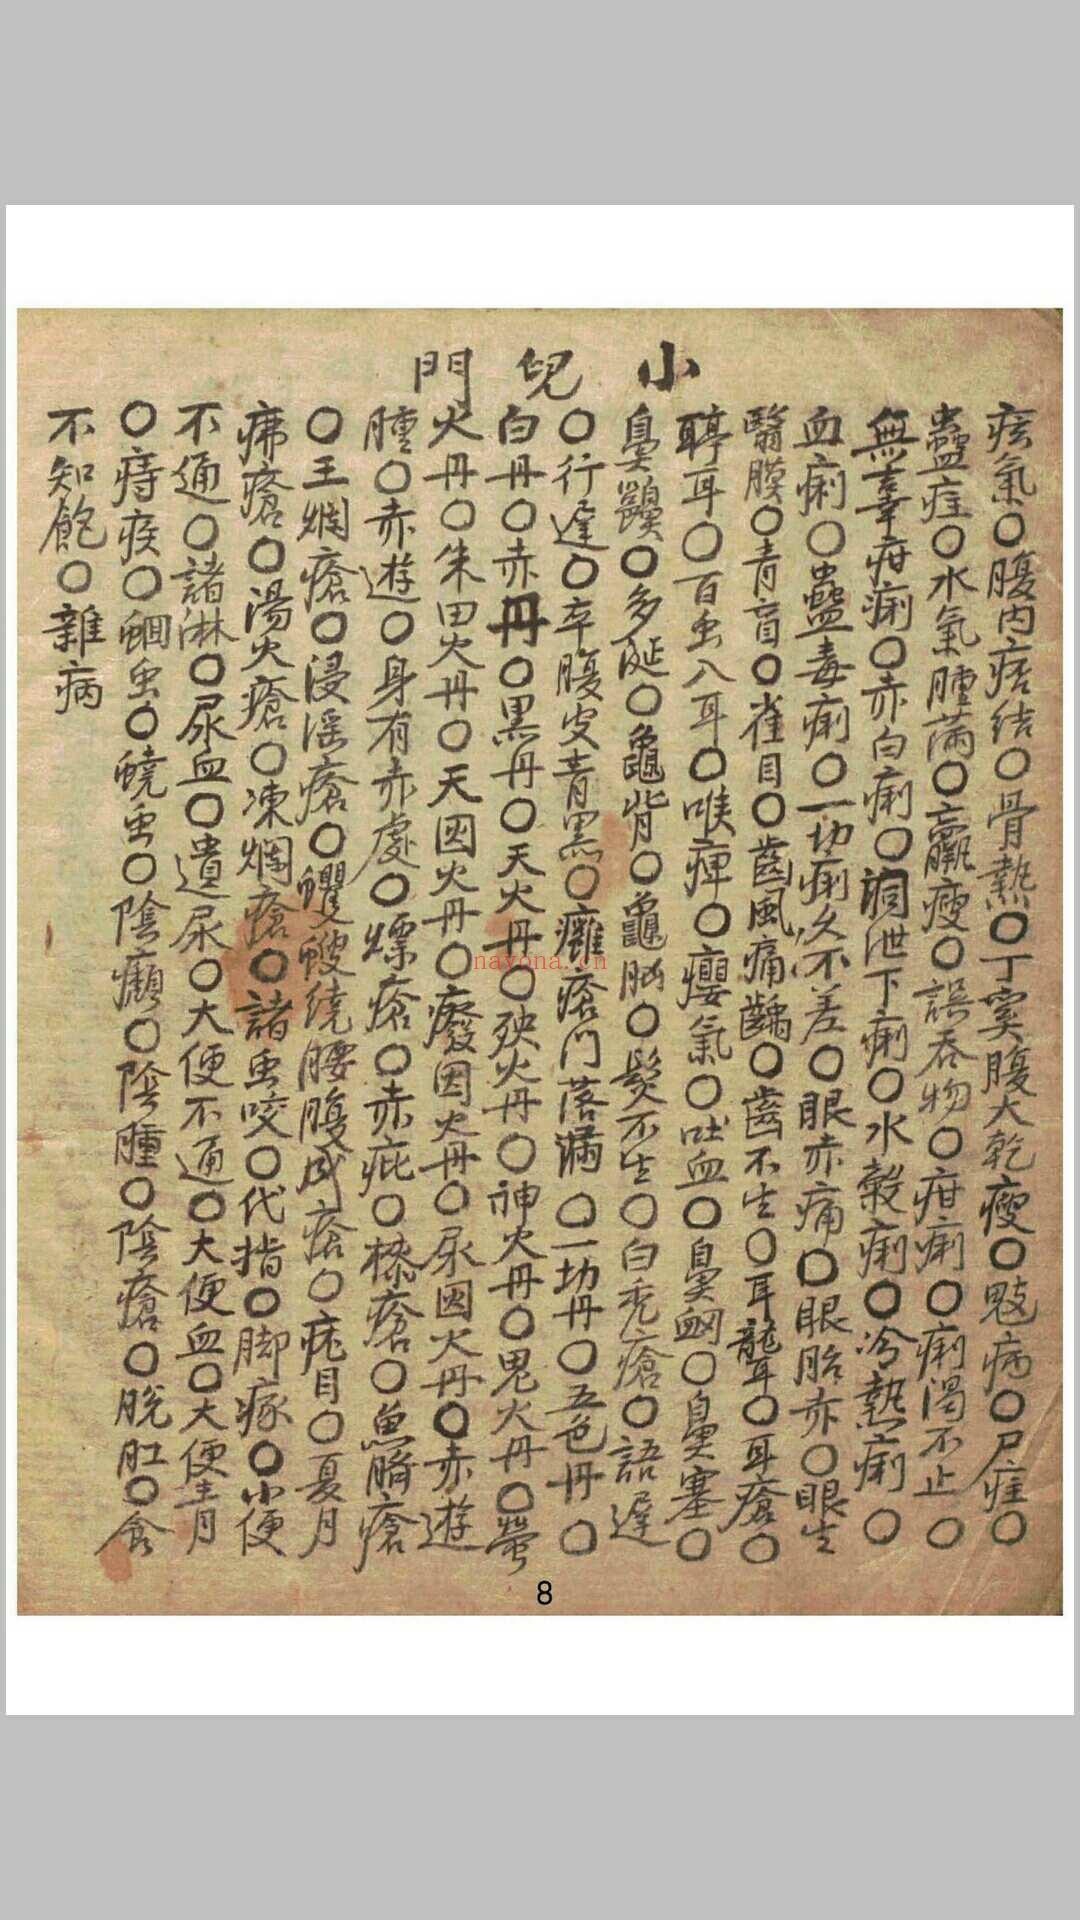 小兒門
痃氣○腹内痞結○骨熱○丁奚腹大乾瘦○鬾病○尸疰○
蠱疰○水氣腫滿○羸瘦○誤吞物○疳痢○痢渴不止○
無辜疳痢○赤白痢○洞泄下痢○水穀痢○冷熱痢○
血痢○蠱毒痢○一切痢久不差○眼赤痛○眼胎赤○眼生
翳膜○青盲○雀目○齒風痛齲○齒不生○耳聾○耳瘡○
聤耳○百虫入耳○喉痺○癭氣○吐血○鼻衄○鼻塞○
鼻齆○多涎○龜背○龜胸○髮不生○白禿瘡○語遲
○行遲○卒腹皮青黑○癰瘡門落痂○一切丹○五色丹○
白丹○赤丹○黑丹○天火丹○殃火丹○神火丹○鬼火丹○螢
火丹○朱田火丹○天因火丹○廢因火丹○尿因火丹○赤遊
腫○赤遊○身有赤處○熛瘡○赤疵○㯃瘡○魚臍瘡
○王爛瘡○浸滛瘡○蠼螋繞腰腹成瘡○疣目○夏月
疿瘡○湯火瘡○凍爛瘡○諸虫咬○代指○脚瘃○小便
不通○諸淋○尿血○遺尿○大便不通○大便血○大便青
○痔疾○蛔虫○蟯虫○陰㿗○陰腫○陰瘡○脫肛○食
不知飽○雜病
nayona.cn
8